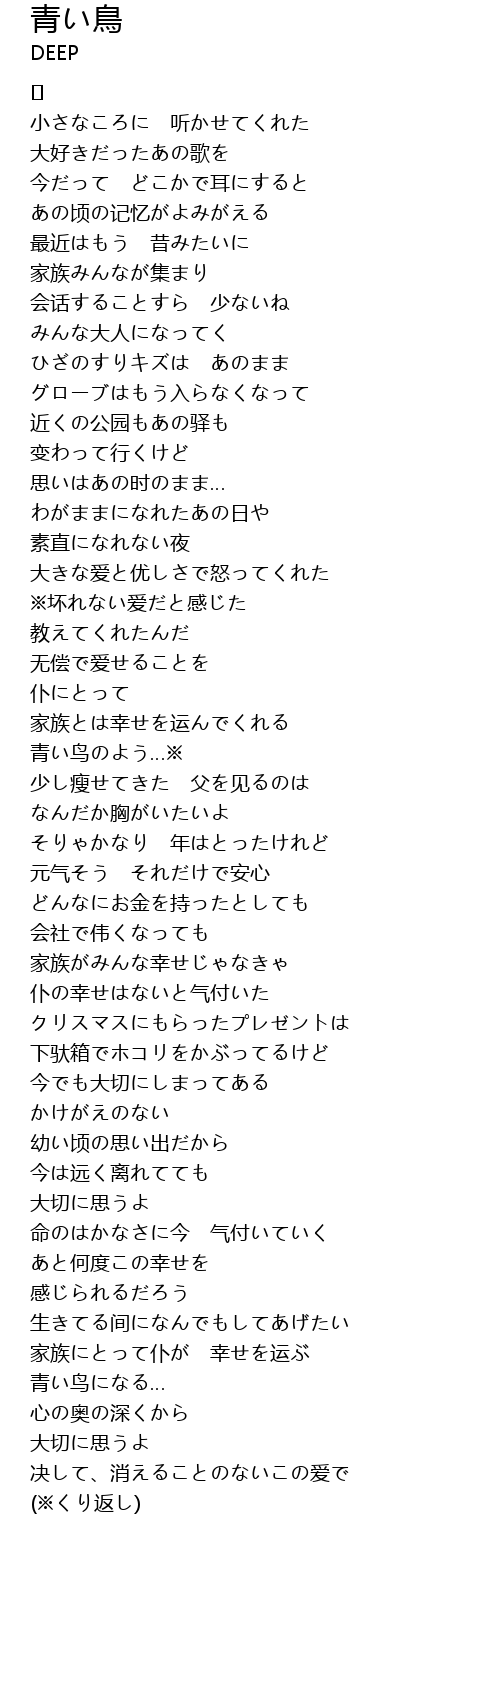 青い鳥
DEEP
[]
小さなころに　听かせてくれた
大好きだったあの歌を
今だって　どこかで耳にすると
あの顷の记忆がよみがえる
最近はもう　昔みたいに
家族みんなが集まり
会话することすら　少ないね
みんな大人になってく
ひざのすりキズは　あのまま
グローブはもう入らなくなって
近くの公园もあの驿も
变わって行くけど
思いはあの时のまま…
わがままになれたあの日や
素直になれない夜
大きな爱と优しさで怒ってくれた
※坏れない爱だと感じた
教えてくれたんだ
无偿で爱せることを
仆にとって
家族とは幸せを运んでくれる
青い鸟のよう…※
少し瘦せてきた　父を见るのは
なんだか胸がいたいよ
そりゃかなり　年はとったけれど
元气そう　それだけで安心
どんなにお金を持ったとしても
会社で伟くなっても
家族がみんな幸せじゃなきゃ
仆の幸せはないと气付いた
クリスマスにもらったプレゼントは
下驮箱でホコリをかぶってるけど
今でも大切にしまってある
かけがえのない
幼い顷の思い出だから
今は远く离れてても
大切に思うよ
命のはかなさに今　气付いていく
あと何度この幸せを
感じられるだろう
生きてる间になんでもしてあげたい
家族にとって仆が　幸せを运ぶ
青い鸟になる…
心の奥の深くから
大切に思うよ
决して、消えることのないこの爱で
(※くり返し)